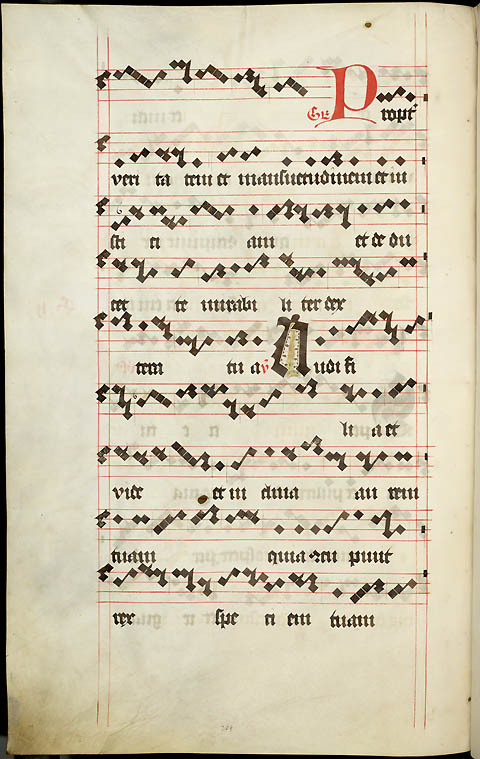 Gr Propt
veri ta tem et mansuetudinem et iu
sti ti am et de du
cet te mirabi li ter dex
tem tu a ℣ Audi fi
li a et
vide et in clina au rem
tuam quia concu piuit
rex spe ci em tuam